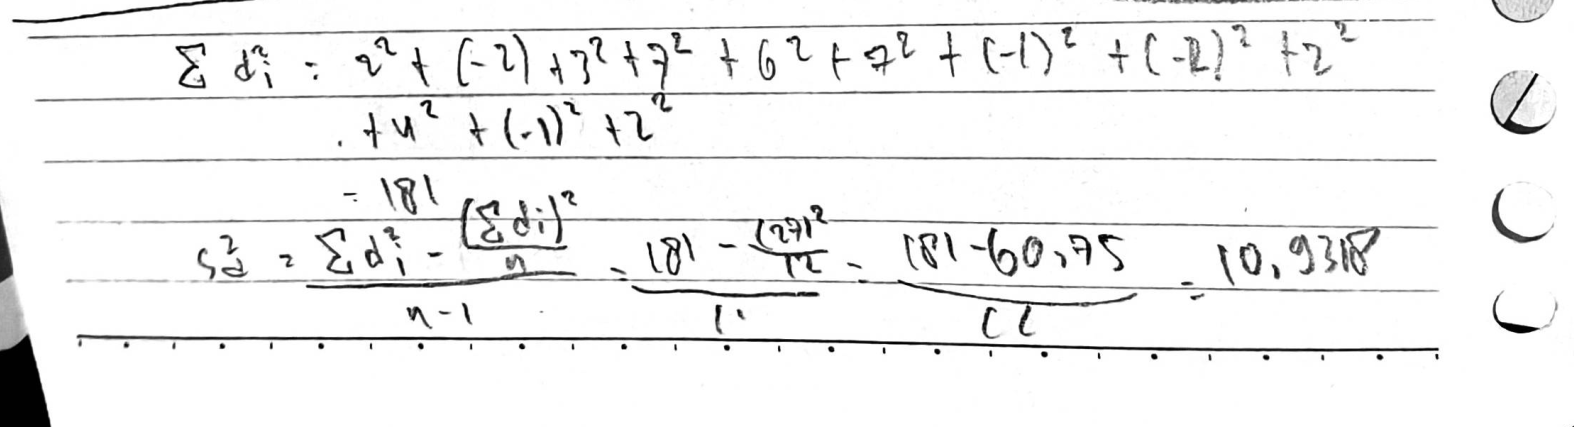 Σ di² = 2² + (-2) + 3² + 7² + 6² + 7² + (-1)² + (-2)² + 2²
+ 4² + (-1)² + 2²
= 181
Sd² = (Σ di² - (Σ di)²/n)/(n-1) = (181 - (27)²/12)/11 = (181-60,75)/11 = 10,9318